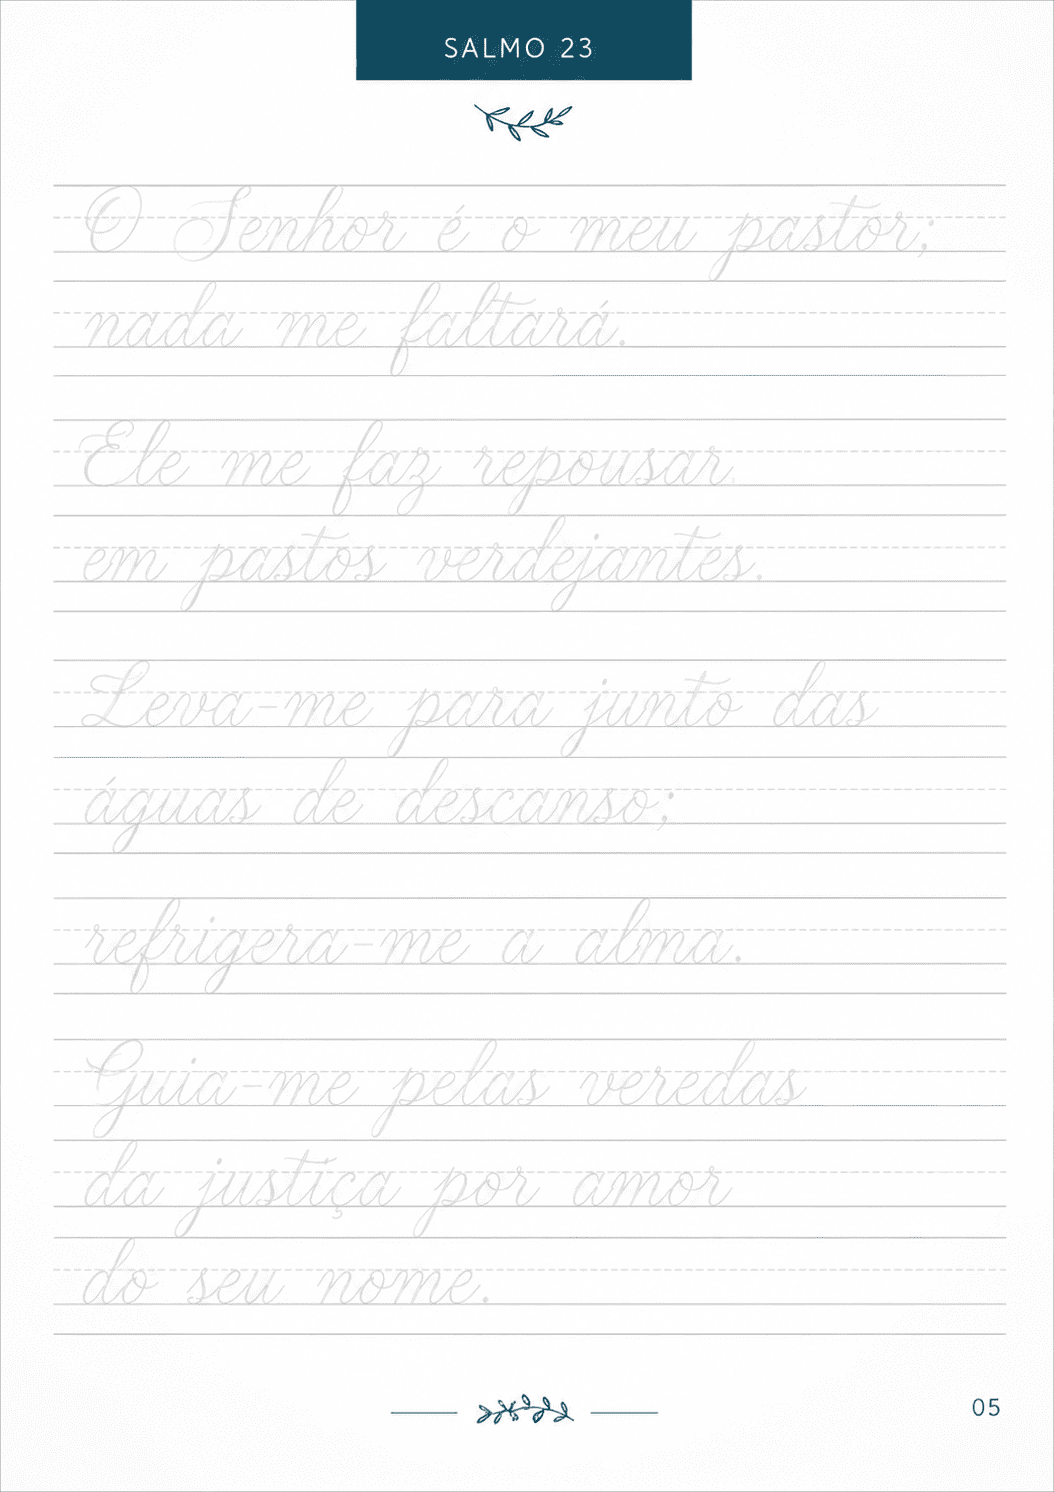 SALMO 23
O Senhor é o meu pastor;
nada me faltará.
Ele me faz repousar
em pastos verdejantes.
Leva-me para junto das
águas de descanso;
refrigera-me a alma.
Guia-me pelas veredas
da justiça por amor
do seu nome.
05